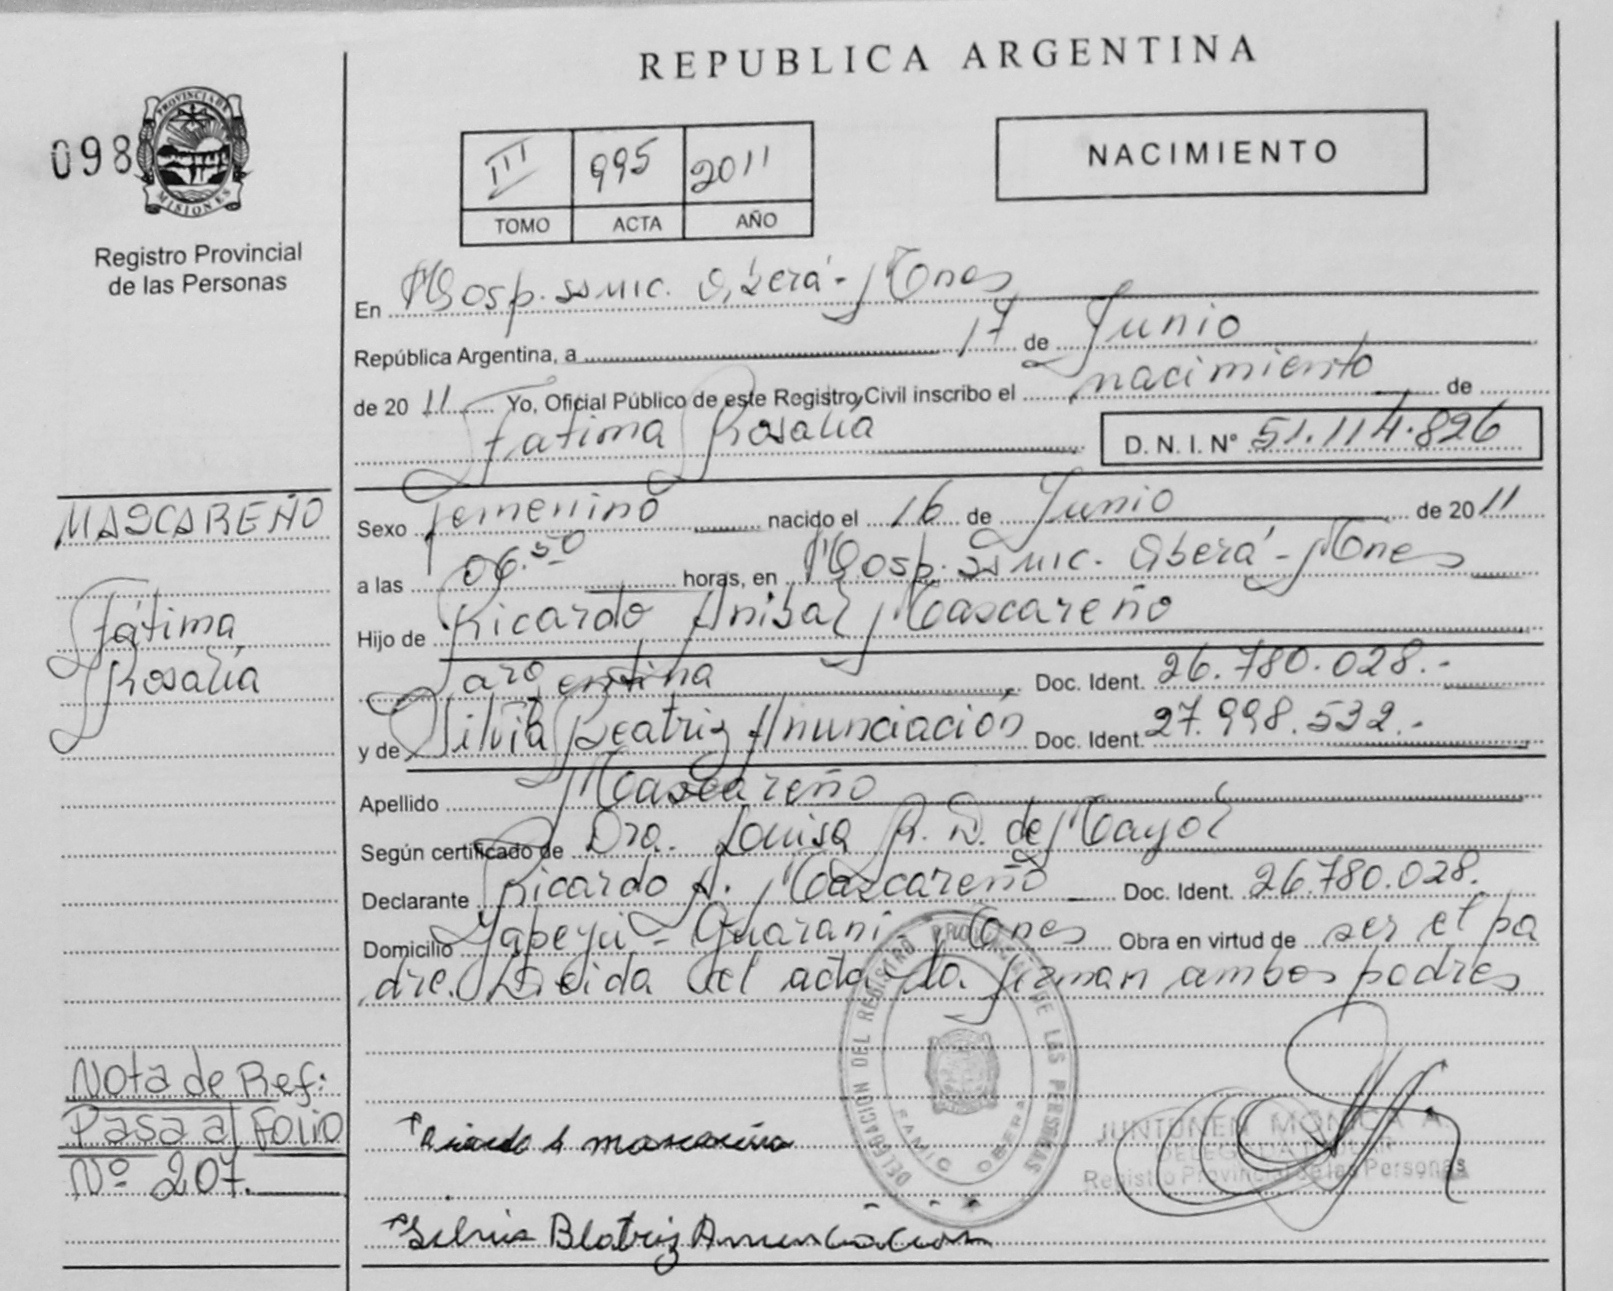 REPUBLICA ARGENTINA
098
PROVINCIA DE MISIONES
Registro Provincial
de las Personas
III 995 2011
TOMO ACTA AÑO
NACIMIENTO
En Hosp. SSMIC. Oberá - Mnes
República Argentina, a 17 de Junio
de 2011 Yo, Oficial Público de este Registro Civil inscribo el nacimiento de
Fátima Rosalía D. N. I. N° 51.114.826
Sexo femenino nacido el 16 de Junio de 2011
a las 06.50 horas, en Hosp. SSMIC. Oberá - Mnes
Hijo de Ricardo Anibal Mascareño
argentina Doc. Ident. 26.780.028.-
y de Silvia Beatriz Anunciación Doc. Ident. 27.998.532.-
Apellido Mascareño
Según certificado de Dra. Louisa R. D. de Mayol
Declarante Ricardo A. Mascareño Doc. Ident. 26.780.028.
Domicilio Yapeyú - Guaraní - Mnes Obra en virtud de ser el pa
dre. Leida el acta la firman ambos padres
MASCAREÑO
Fátima
Rosalía
Nota de Ref:
Pasa al Folio
Nº 207.
DELEGACIÓN DEL REGISTRO PROVINCIAL DE LAS PERSONAS
OBERA
Ricardo A Mascareño
JUNTUNEN MONICA A.
DELEGADA TITULAR
Registro Provincial de las Personas
Silvia Beatriz Anunciacion